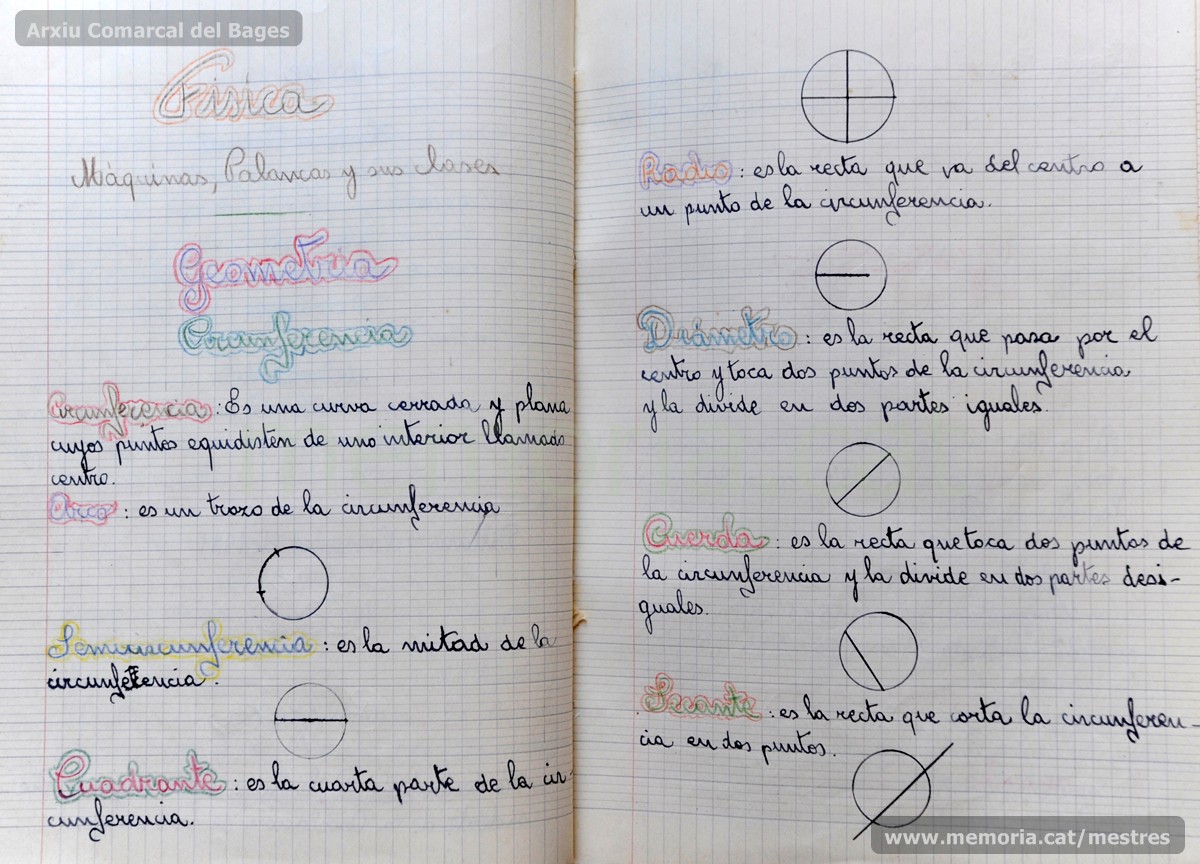 Arxiu Comarcal del Bages
Física
Máquinas, Palancas y sus clases
Geometria
Circunferencia
Circunferencia: Es una curva cerrada y plana
cuyos puntos equidisten de uno interior llamado
centro.
Arco: es un trozo de la circunferencia
Semicircunferencia: es la mitad de la
circunferencia.
Cuadrante: es la cuarta parte de la cir-
cunferencia.
Radio: es la recta que va del centro a
un punto de la circunferencia.
Diámetro: es la recta que pasa por el
centro y toca dos puntos de la circunferencia
y la divide en dos partes iguales.
Cuerda: es la recta que toca dos puntos de
la circunferencia y la divide en dos partes desi-
guales.
Secante: es la recta que corta la circunferen-
cia en dos puntos.
www.memoria.cat/mestres